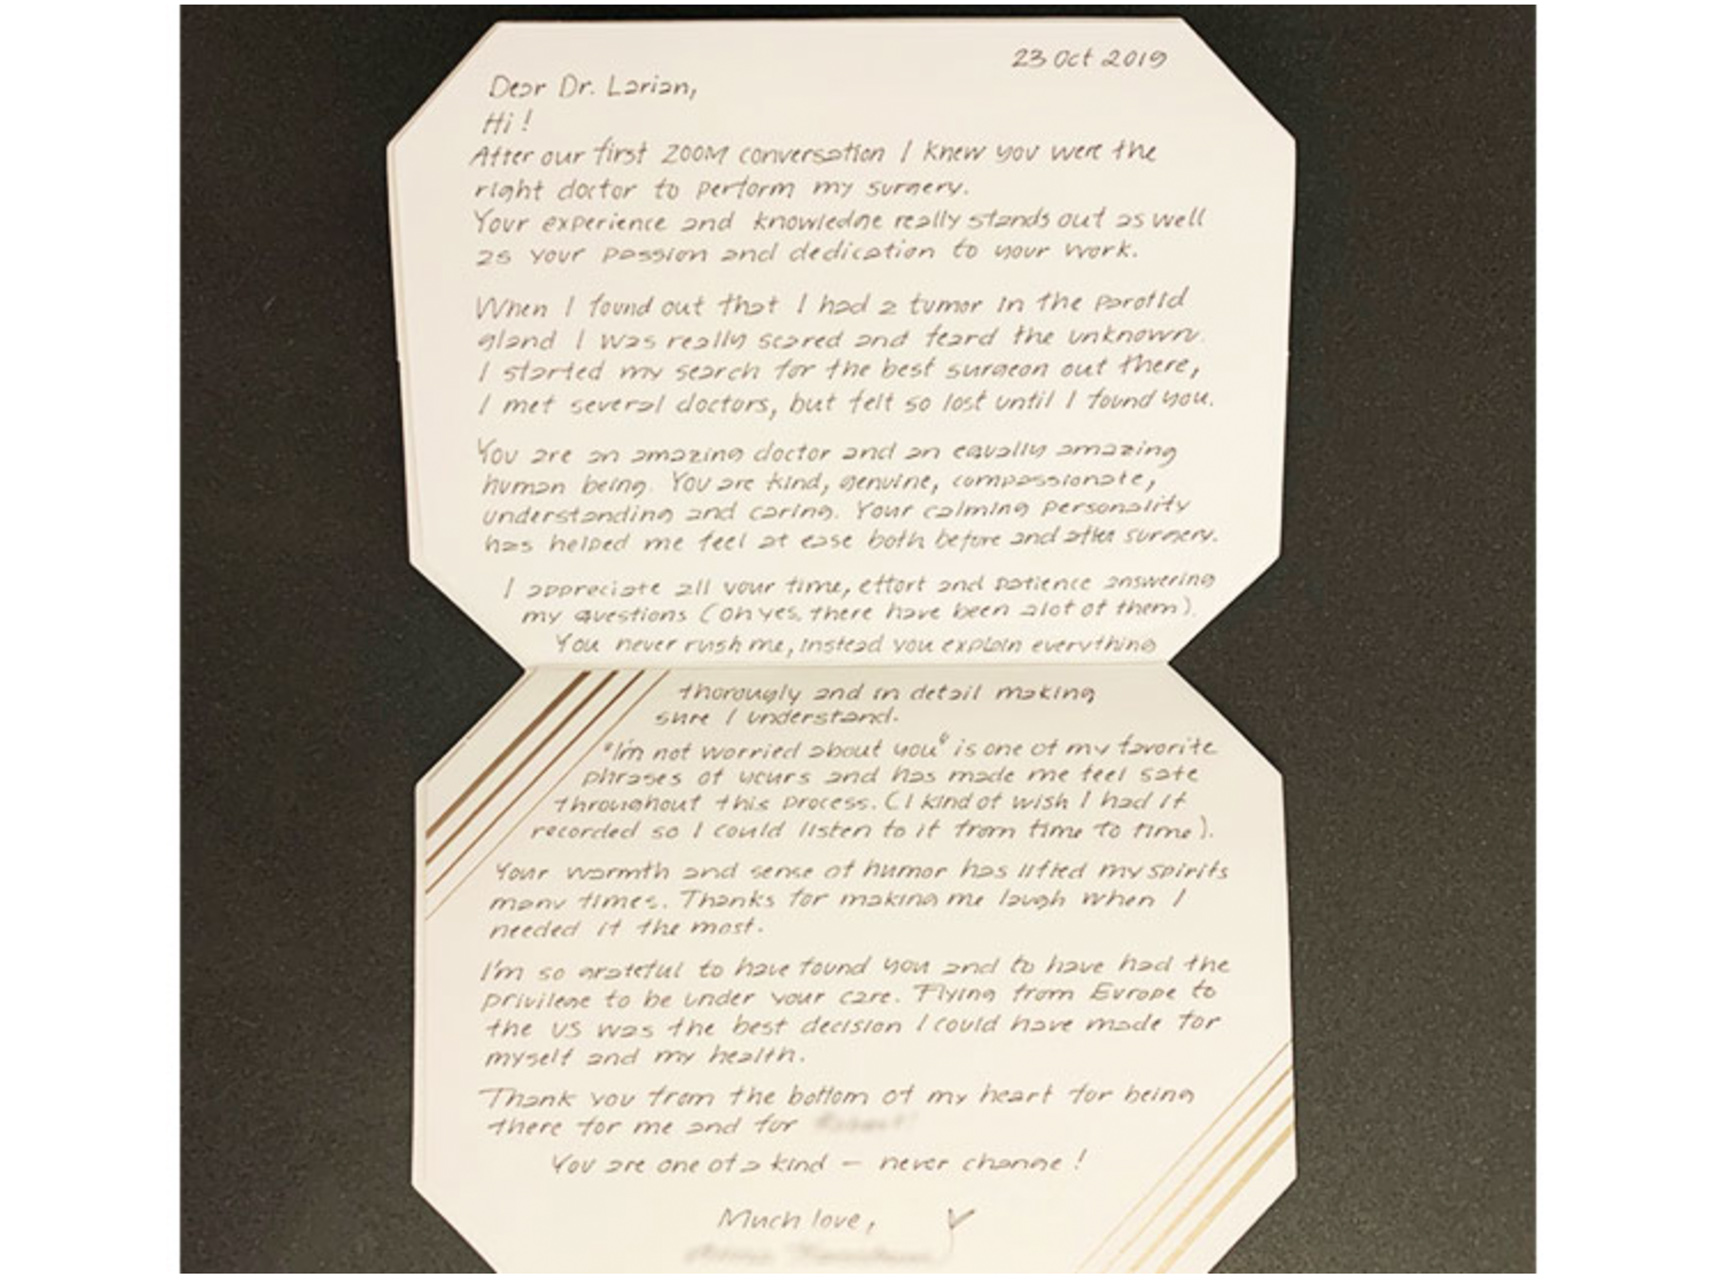 23 Oct 2019
Dear Dr. Larian,
Hi!
After our first ZOOM conversation I knew you were the
right doctor to perform my surgery.
Your experience and knowledge really stands out as well
as your passion and dedication to your work.
When I found out that I had a tumor in the parotid
gland I was really scared and feard the unknown.
I started my search for the best surgeon out there,
I met several doctors, but felt so lost until I found you.
You are an amazing doctor and an equally amazing
human being. You are kind, genuine, compassionate,
understanding and caring. Your calming personality
has helped me feel at ease both before and after surgery.
I appreciate all your time, effort and patience answering
my questions (oh yes, there have been alot of them).
You never rush me, instead you explain everything
thorougly and in detail making
sure I understand.
"I'm not worried about you" is one of my favorite
phrases of yours and has made me feel safe
throughout this process. (I kind of wish I had it
recorded so I could listen to it from time to time).
Your warmth and sense of humor has lifted my spirits
many times. Thanks for making me laugh when I
needed it the most.
I'm so grateful to have found you and to have had the
privilege to be under your care. Flying from Europe to
the US was the best decision I could have made for
myself and my health.
Thank you from the bottom of my heart for being
there for me and for
You are one of a kind – never change!
Much love,